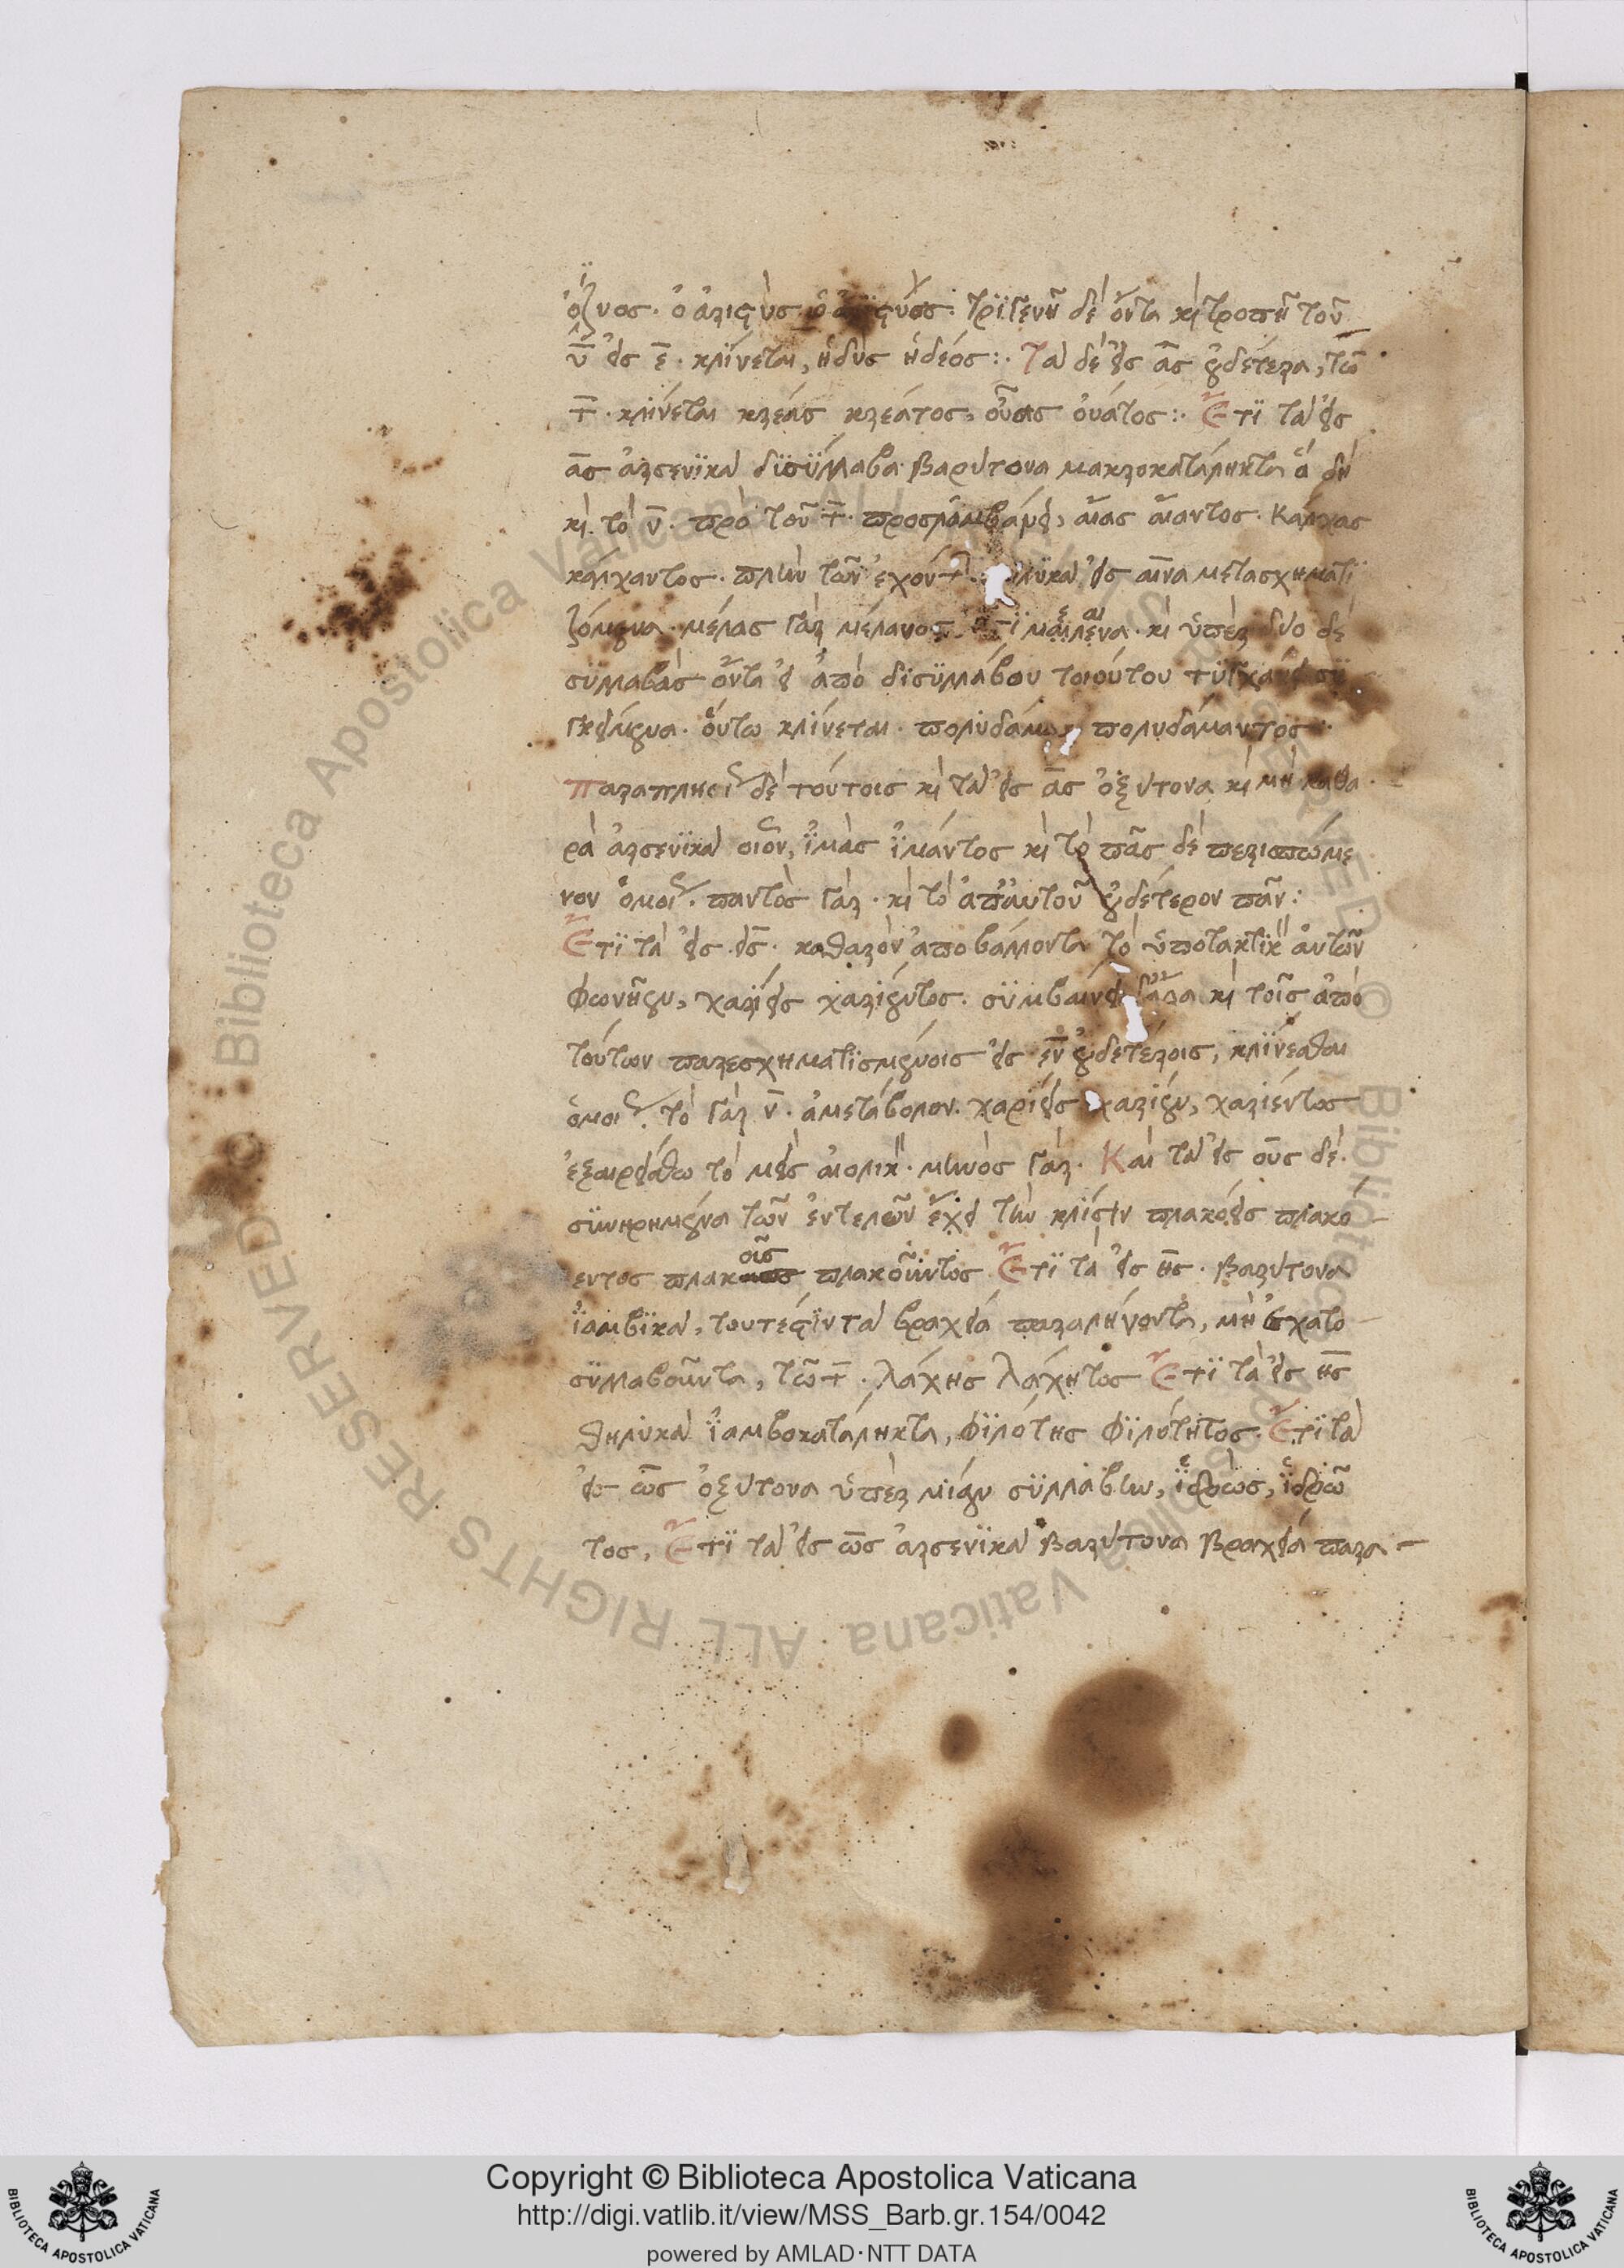 ὀϊζυος. ὁ ἀριστὺς ἀριστύος. τριγενῆ δὲ ὄντα κὶ τροπῆ τοῦ
ῡ εἰς ε̄. κλίνεται, ἡδὺς ἡδέος:. Τὰ δὲ εἰς ᾱς οὐδέτερα, τῶ
τ̄. κλίνεται κρέας κρέατος, οὖας οὐατος:. Ἔτι τὰ εἰς
ᾱς ἀρσενικὰ δισύλλαβα βαρύτονα μακροκατάληκτα ἃ δὴ
κὶ τὸ ν̄. πρὸ τοῦ τ̄. προσλαμβάνει, αἴας αἴαντος. κάλχας
κάλχαντος. πλὴν τῶν ἐχόντ εἰς αινα μετασχηματι
ζόμενα. μέλας γὰρ μέλανος μέλαινα. κὶ ὑπὲρ δύο δὲ
συλλαβὰς ὄντα εἰ ἀπὸ δισυλλάβου τοιούτου τυγχάνει συ
γκείμενα. οὕτω κλίνεται. πολυδάμας πολυδάμαντος:
παραπλησί δὲ τούτοις κὶ τὰ εἰς ᾱς ὀξύτονα κὶ μὴ καθα
ρὰ ἀρσενικὰ οἷον, ἱμὰς ἱμάντος κὶ τὸ πᾶς δὲ περισπώμε
νον ὁμοί. παντὸς γὰρ. κὶ τὸ ἀπ' αὐτοῦ οὐδέτερον πᾶν:
Ἔτι τὰ εἰς εῑς. καθαρὸν ἀποβάλλοντα τὸ ὑποτακτικ αὐτῶν
φωνῆεν, χαρίεις χαρίεντος. συμβαίνει ἄρα κὶ τοῖς ἀπὸ
τούτων παρεσχηματισμένοις εἰς εν̄ οὐδετέροις, κλίνεσθαι
ὁμοί. τὸ γὰρ ν̄. ἀμετάβολον. χαρίεις χαρίεν, χαρίεντος
ἐξαιρείσθω τὸ μεὶς αἰολικ. μηνὸς γάρ. Καὶ τὰ εἰς οῡς δὲ.
συνηρημένα τῶν ἐντελῶν ἔχει τὴν κλίσιν πλακόεις πλακό
εντος πλακοῦς πλακοῦντος Ἔτι τὰ εἰς η̄ς. βαρύτονα
ἰαμβικὰ, τουτέστιν τὰ βραχεία παραλήγοντα, μὴ ἐσχατο
συλλαβοῦντα, τῶ τ̄. λάχης λάχητος Ἔτι τὰ εἰς η̄ς
θηλυκὰ ἰαμβοκατάληκτα, φιλότης φιλότητος. Ἔτι τὰ
εἰς ω̄ς ὀξύτονα ὑπὲρ μίαν συλλαβὴν, ἱδρὼς, ἱδρῶ
τος, Ἔτι τὰ εἰς ω̄ς ἀρσενικὰ βαρύτονα βραχεία παρα
Copyright © Biblioteca Apostolica Vaticana
http://digi.vatlib.it/view/MSS_Barb.gr.154/0042
powered by AMLAD·NTT DATA
BIBLIOTECA APOSTOLICA VATICANA
BIBLIOTECA APOSTOLICA VATICANA